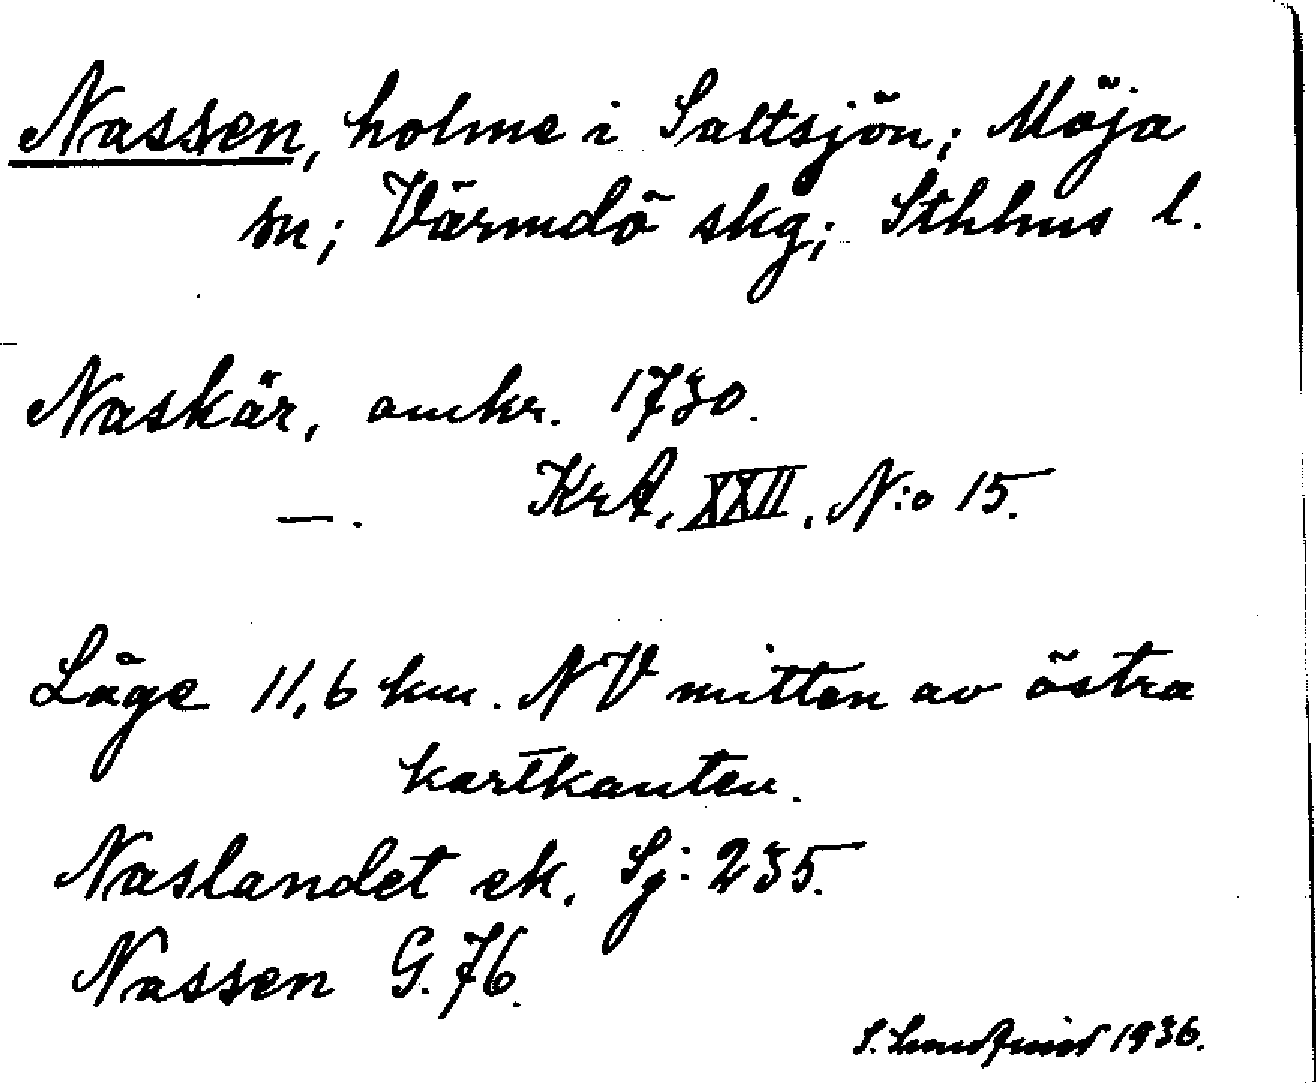 Nassen, holme i Saltsjön; Möja
sn; Värmdö skg; Sthlms l.
Naskär, omkr. 1730.
—. KrA, XXII, N:o 15.
Läge 11,6 km. NV mitten av östra
kartkanten.
Naslandet ek. Sj: 235.
Nassen G. 76.
S. Lundqvist 1936.